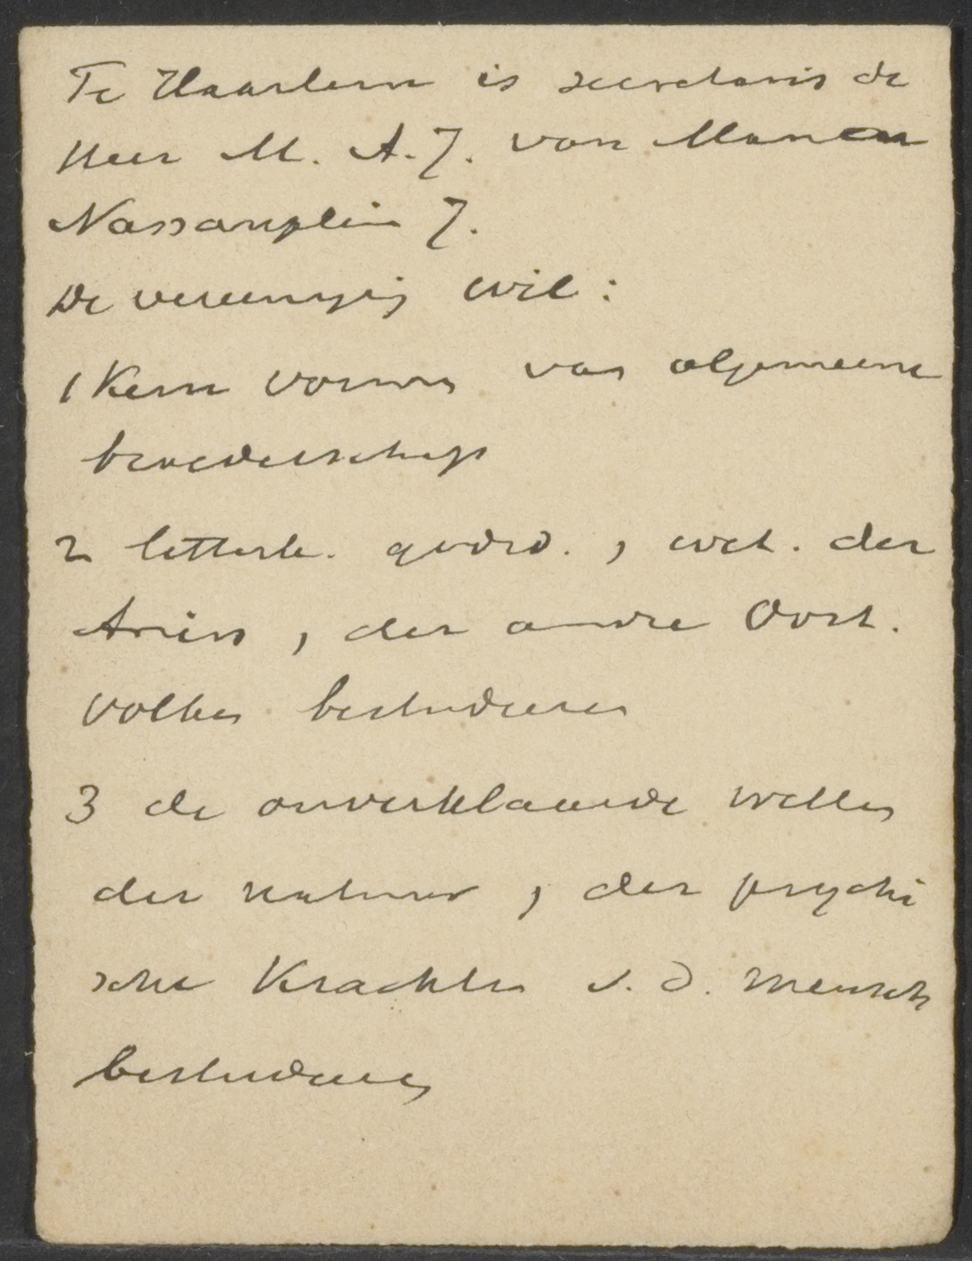 Te Haarlem is secretaris de
Heer M. A. J. van Manen
Nassauplein 7.
De vereeniging wil:
1 Kern vormen van algemeene
broederschap
2 letterk. godsd., wet. der
Ariërs, der andre Oost.
volken bestudeeren
3 de onverklaarde wetten
der natuur, der psychi
sche Krachten v. d. mensch
bestudeeren